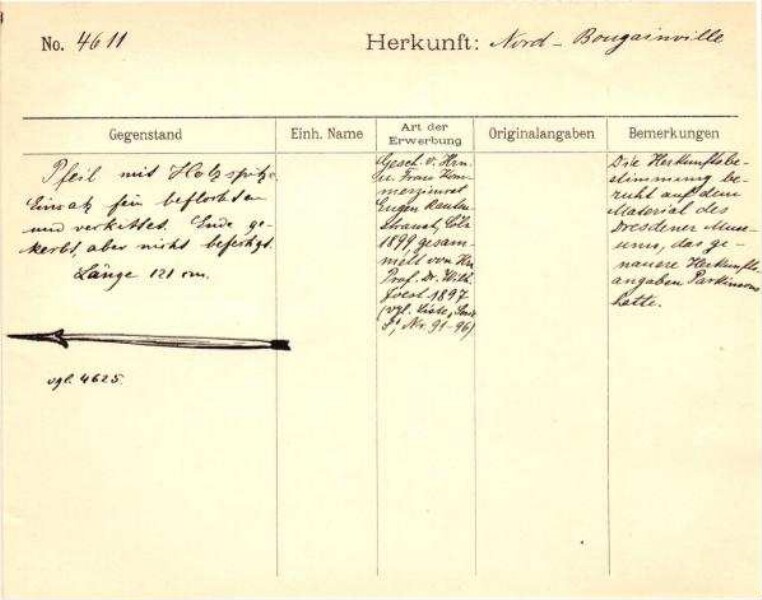 No. 4611
Herkunft: Nord-Bougainville
Gegenstand
Einh. Name
Art der
Erwerbung
Originalangaben
Bemerkungen
Pfeil mit Holzspitze.
Einsatz fein beflochten
und verkittet. Ende ge-
kerbt, aber nicht befestigt.
Länge 121 cm.
vgl. 4625.
Gesch. v. Hrn.
u. Frau Kom-
merzienrat
Eugen Rauten-
strauch, Cöln
1899, gesam-
melt von Hn.
Prof. Dr. Wilh.
Joest 1897
(vgl. Liste,
Nr. 91-96)
Die Herkunftsbe-
stimmung be-
ruht auf dem
Material des
Dresdener Muse-
ums, das ge-
nauere Herkunfts-
angaben Parkinsons
hatte.